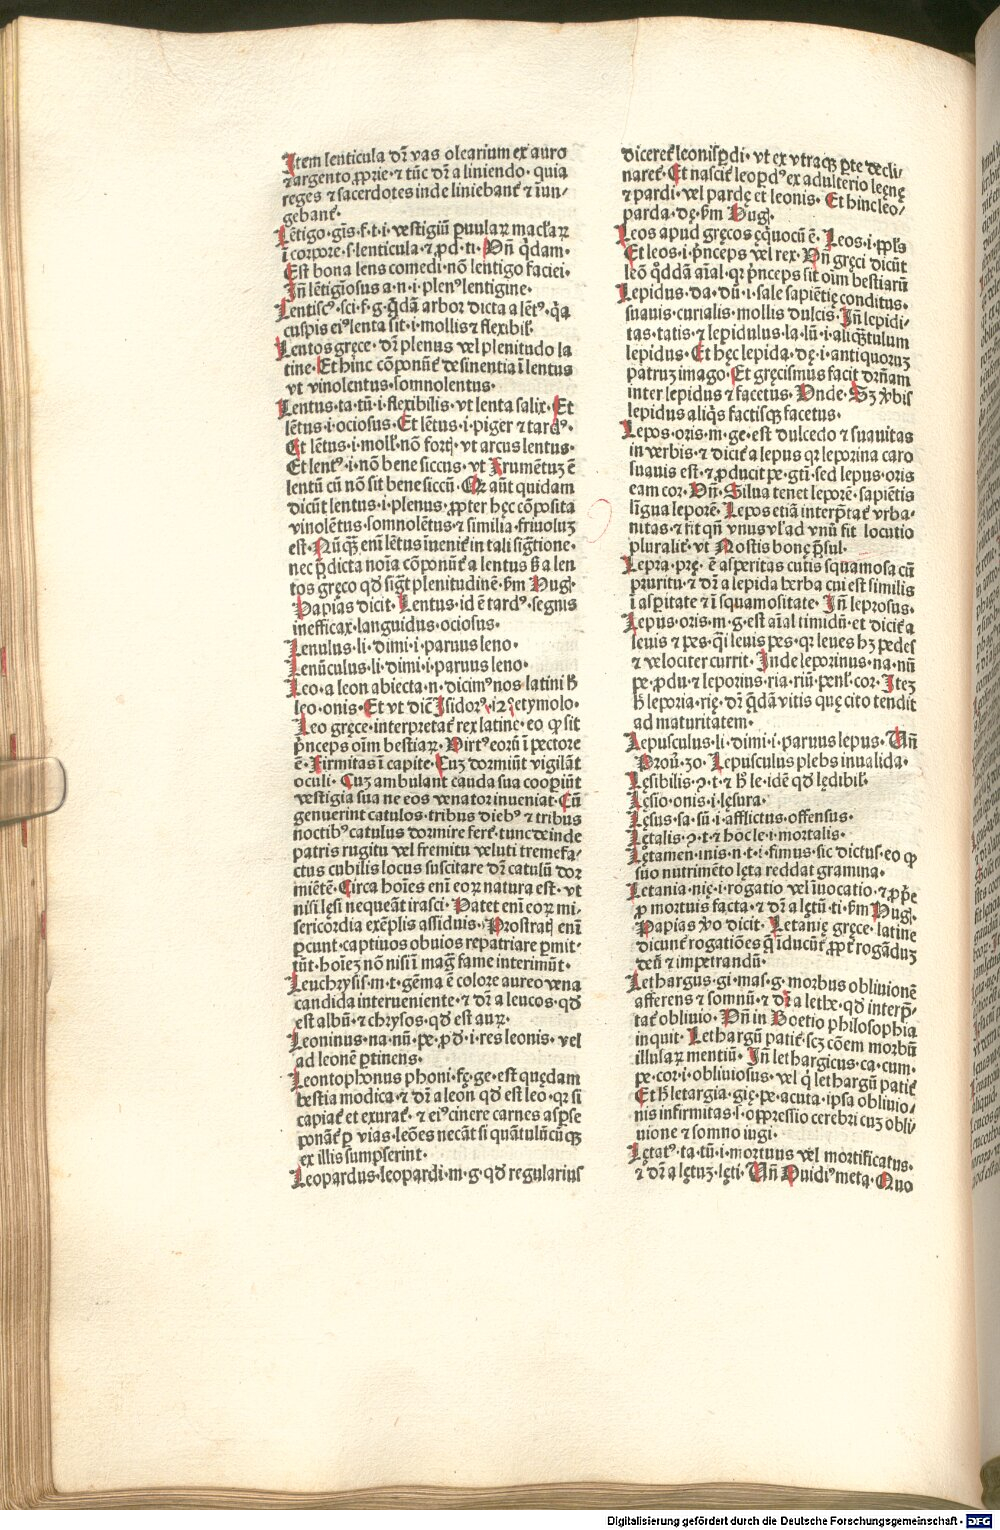 Item lenticula dr̄ vas olearium ex auro
⁊ argento ꝓprie · ⁊ tūc dr̄ a liniendo · quia
reges ⁊ sacerdotes inde liniebant̄ ⁊ īun-
gebant̄ ·
Lētigo · gīs · f · t · i · vestigiū puulaꝝ macl̓aꝝ
ī corpore · s · lenticula · ⁊ ꝓd · ti · Vn̄ q̇dam ·
Est bona lens comedi · nō lentigo faciei ·
In̄ lētigīosus a · n · i · plenꝰ lentigine ·
Lentiscꝰ · sci · f · g · q̄dā arbor dicta a lētꝰ · q̇a
cuspis eiꝰ lenta sit · i · mollis ⁊ flexibil̓ ·
Lentos gręce · dr̄ plenus vel plenitudo la
tine · Et hinc cōponūt̄ desinentia ī lentus
vt vinolentus · somnolentus ·
Lentus · ta · tū · i · flexibilis · vt lenta salix · Et
lētus · i · ociosus · Et lētus · i · piger ⁊ tardꝰ ·
Et lētus · i · moll̓ · nō fortꝭ · vt arcus lentus ·
Et lentꝰ · i · nō bene siccus · vt Frumētuꝫ ē
lentū cū nō sit bene siccū · Qꝛ aūt quidam
dicūt lentus · i · plenus · ꝓpter hęc cōposita
vinolētus · somnolētus · ⁊ similia · friuoluꝫ
est · Nūqꝫ enī lētus īuenit̄ in tali sigt̄ione ·
nec p̄dicta noīa cōponūt̄ a lentus sꝫ a len
tos gręco qd̓ sigt̄ plenitudinē · ẜm Hug̓ ·
Papias dicit · Lentus · id ē tardꝰ · segnus
inefficax · languidus · ociosus ·
Lenulus · li · dimi · i · paruus leno ·
Lenūculus · li · dimi · i · paruus leno ·
Leo · a leon abiecta · n · dicimꝰ nos latini h̓
leo · onis · Et vt dic̄ Isidorꝰ · 12 · etymolo ·
Leo gręce · interpretat̄ rex latine · eo ꝙ sit
p̄nceps oīm bestiaꝝ · Virtꝰ eorū ī pectore
ē · Firmitas ī capite · Cuꝫ dormiūt vigilāt
oculi · Cuꝫ ambulant cauda sua coopiūt
vestigia sua ne eos venator inueniat · Cū
genuerint catulos · tribus diebꝰ ⁊ tribus
noctibꝰ catulus dormire fert̄ · tunc deinde
patris rugitu vel fremitu veluti tremefa-
ctus cubilis locus suscitare dr̄ catulū dor
miētē · Circa hoīes enī eoꝝ natura est · vt
nisi lęsi nequeāt irasci · Patet enī eoꝝ mi-
sericordia exēplis assiduis · Prostratꝭ enī
ꝑcunt · captiuos obuios repatriare ꝑmit-
tūt · hoīeꝫ nō nisi ī maḡ fame interimūt ·
Leuchrysis · m · t · gēma ē colore aureo vena
candida interueniente · ⁊ dr̄ a leucos · qd̓
est albū · ⁊ chrysos · qd̓ est auꝝ ·
Leoninus · na · nū · pe · ꝓd · i · res leonis · vel
ad leonē ꝑtinens ·
Leontophonus phoni · fę · ge · est quędam
bestia modica · ⁊ dr̄ a leon qd̓ est leo · qꝛ si
capiat̄ et exurat̄ · ⁊ eiꝰ cinere carnes aspse
ponāt̄ ꝑ vias · leōes necāt si quātulūcūqꝫ
ex illis sumpserint ·
Leopardus · leopardi · m · g · qd̓ regularius
diceret̄ leonispdi · vt ex vtraqꝫ ꝑte decli-
naret̄ · Et nascit̄ leopdꝰ ex adulterio leęnę
⁊ pardi · vel pardę et leonis · Et hinc leo/
parda · dę · ẜm Hug̓ ·
Leos apud gręcos ęquocū ē · Leos · i · ppl̓s
Et leos · i · p̄nceps vel rex · Vn̄ gręci dicūt
leō q̄ddā aīal · qꝛ p̄nceps sit oīm bestiarū
Lepidus · da · dū · i · sale sapiētię conditus ·
suauis · curialis · mollis dulcis · In̄ lepidi-
tas · tatis · ⁊ lepidulus · la · lū · i · aliq̄ztulum
lepidus · Et hęc lepida · dę · i · antiquoruꝫ
patruꝫ imago · Et gręcismus facit drn̄am
inter lepidus ⁊ facetus · Vnde · Sꝫ v̓bis
lepidus aliq̇s factisqꝫ facetus ·
Lepos · oris · m · ge · est dulcedo ⁊ suauitas
in verbis · ⁊ dicit̄ a lepus qꝛ leporina caro
suauis est · ⁊ ꝓducit pe · gt̄i · sed lepus · oris
eam cor · Vn̄ · Silua tenet leporē · sapiētis
līgua leporē · Lepos etiā interp̄tat̄ vrba-
nitas · ⁊ fit qn̄ vnus vl̓ ad vnū fit locutio
pluralit̄ · vt Nostis bonę p̄sul ·
Lepra · prę · ē asperitas cutis squamosa cū
pruritu · ⁊ dr̄ a lepida herba cui est similis
ī aspitate ⁊ ī squamositate · In̄ leprosus ·
Lepus · oris · m · g · est aīal timidū · et dicit̄ a
leuis ⁊ pes · q̄i leuis pes · qꝛ leues hꝫ pedes
⁊ velociter currit · Inde leporinus · na · nū
pe · ꝓdu · ⁊ leporius · ria · riū · penl̓ · cor · Iteꝫ
h̓ leporia · rię · dr̄ q̄dā vitis quę cito tendit
ad maturitatem ·
Lepusculus · li · dimi · i · paruus lepus · Vn̄
Prou̓ · 30 · Lepusculus plebs inualida ·
Lęsibilis · ꝯ · t · ⁊ h̓ le · idē qd̓ lędibil̓ ·
Lęsio · onis · i · lęsura ·
Lęsus · sa · sū · i · afflictus · offensus ·
Lętalis · ꝯ · t · ⁊ hoc le · i · mortalis ·
Lętamen · inis · n · t · i · fimus · sic dictus · eo ꝙ
suo nutrimēto lęta reddat gramina ·
Letania · nię · i · rogatio vel īuocatio · ⁊ ꝓp̄e
ꝓ mortuis facta · ⁊ dr̄ a lętū · ti · ẜm Hug̓ ·
Papias v̓o dicit · Letanię gręce · latine
dicunt̄ rogatiōes q̄ īducūt̄ ꝓpt̄ rogāduꝫ
deū ⁊ impetrandū ·
Lethargus · gi · mas · g · morbus obliuionē
afferens ⁊ somnū · ⁊ dr̄ a lethe · qd̓ interp̄-
tat̄ obliuio · Vn̄ in Boetio philosophia
inquit · Lethargū patit̄ · scꝫ cōem morbū
illusaꝝ mentiū · In̄ lethargicus · ca · cum ·
pe · cor · i · obliuiosus · vel q̇ lethargū patit̄
Et h̓ letargia · gię · pe · acuta · ipsa obliuio/
nis infirmitas · l · oppressio cerebri cuꝫ obli/
uione ⁊ somno iugi ·
Lętatꝰ · ta · tū · i · mortuus vel mortificatus ·
⁊ dr̄ a lętuꝫ · lęti · Vn̄ Ouidiꝰ meta · Quo
Digitalisierung gefördert durch die Deutsche Forschungsgemeinschaft - DFG